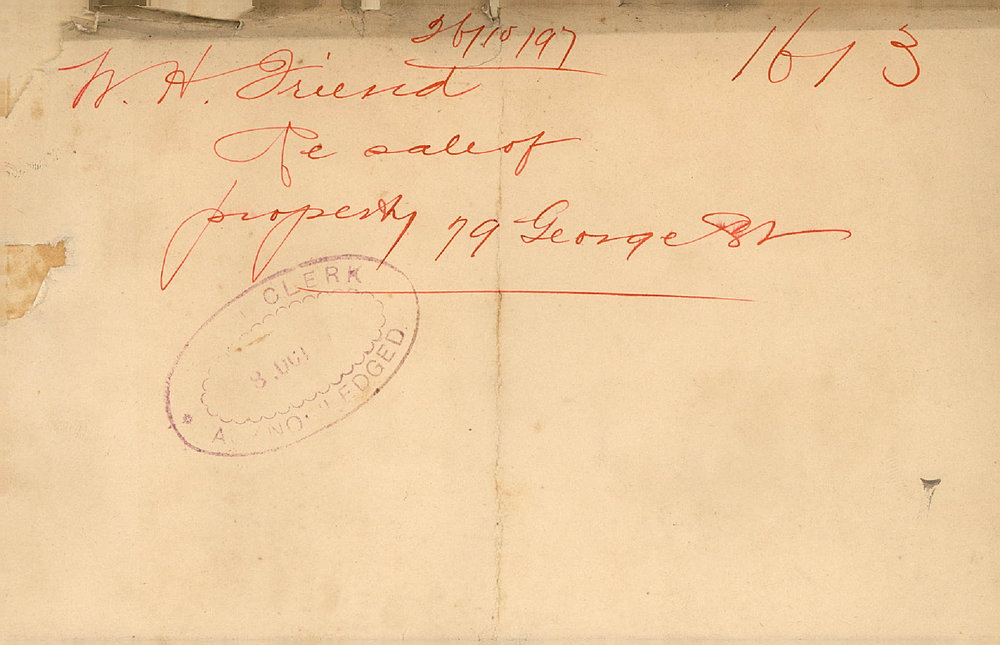 26/10/97
1613
W. H. Friend
Re sale of
property 79 George St
CLERK
8 OCT
ACKNOWLEDGED.